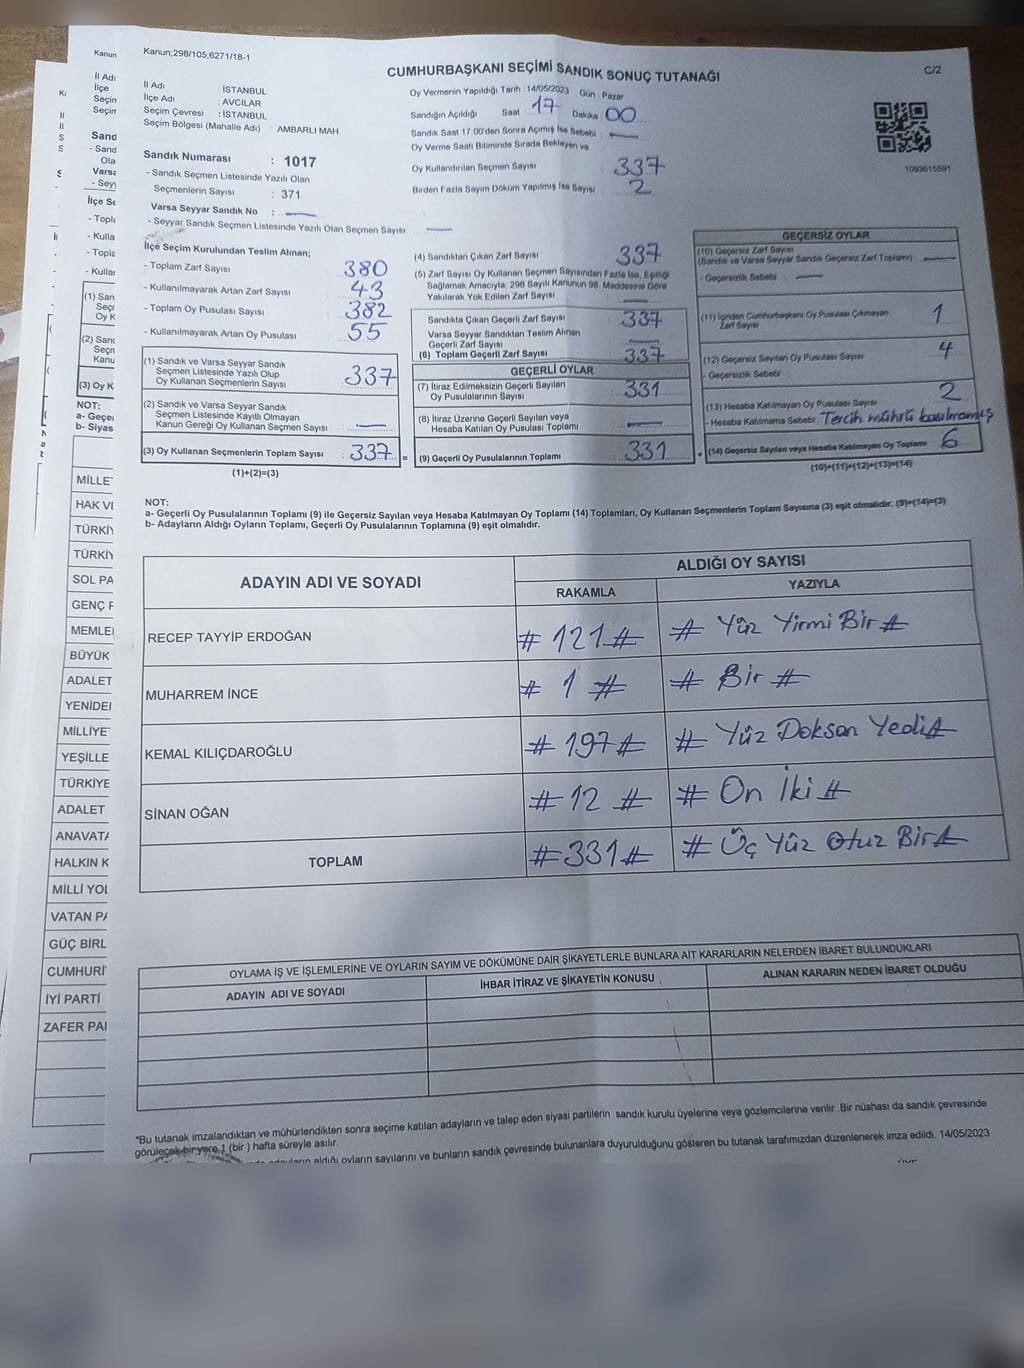 Kanun;298/105;6271/18-1
CUMHURBAŞKANI SEÇİMİ SANDIK SONUÇ TUTANAĞI
C/2
İl Adı : İSTANBUL
İlçe Adı : AVCILAR
Seçim Çevresi : İSTANBUL
Seçim Bölgesi (Mahalle Adı) : AMBARLI MAH
Sandık Numarası : 1017
- Sandık Seçmen Listesinde Yazılı Olan
Seçmenlerin Sayısı : 371
Varsa Seyyar Sandık No :
- Seyyar Sandık Seçmen Listesinde Yazılı Olan Seçmen Sayısı
Oy Vermenin Yapıldığı Tarih : 14/05/2023 Gün : Pazar
Sandığın Açıldığı Saat 17 Dakika 00
Sandık Saat 17:00'den Sonra Açımış İse Sebebi :
Oy Verme Saati Bitiminde Sırada Bekleyen ve
Oy Kullandırılan Seçmen Sayısı 337
Birden Fazla Sayım Döküm Yapılmış İse Sayısı 2
1093615591
İlçe Seçim Kurulundan Teslim Alınan;
- Toplam Zarf Sayısı 380
- Kullanılmayarak Artan Zarf Sayısı 43
- Toplam Oy Pusulası Sayısı 382
- Kullanılmayarak Artan Oy Pusulası 55
(1) Sandık ve Varsa Seyyar Sandık
Seçmen Listesinde Yazılı Olup
Oy Kullanan Seçmenlerin Sayısı 337
(2) Sandık ve Varsa Seyyar Sandık
Seçmen Listesinde Kayıtlı Olmayan
Kanun Gereği Oy Kullanan Seçmen Sayısı
(3) Oy Kullanan Seçmenlerin Toplam Sayısı : 337 =
(1)+(2)=(3)
(4) Sandıktan Çıkan Zarf Sayısı 337
(5) Zarf Sayısı Oy Kullanan Seçmen Sayısından Fazla İse, Eşitliği
Sağlamak Amacıyla, 298 Sayılı Kanunun 98. Maddesine Göre
Yakılarak Yok Edilen Zarf Sayısı
Sandıkta Çıkan Geçerli Zarf Sayısı : 337
Varsa Seyyar Sandıktan Teslim Alınan
Geçerli Zarf Sayısı
(6) Toplam Geçerli Zarf Sayısı 337
GEÇERLİ OYLAR
(7) İtiraz Edilmeksizin Geçerli Sayılan
Oy Pusulalarının Sayısı 331
(8) İtiraz Üzerine Geçerli Sayılan veya
Hesaba Katılan Oy Pusulası Toplamı
(9) Geçerli Oy Pusulalarının Toplamı 331 +
GEÇERSİZ OYLAR
(10) Geçersiz Zarf Sayısı
(Sandık ve Varsa Seyyar Sandık Geçersiz Zarf Toplamı) :
- Geçersizlik Sebebi :
(11) İçinden Cumhurbaşkanı Oy Pusulası Çıkmayan
Zarf Sayısı 1
(12) Geçersiz Sayılan Oy Pusulası Sayısı 4
- Geçersizlik Sebebi
(13) Hesaba Katılmayan Oy Pusulası Sayısı 2
- Hesaba Katılmama Sebebi : Tercih mührü basılmamış
(14) Geçersiz Sayılan veya Hesaba Katılmayan Oy Toplamı 6
(10)+(11)+(12)+(13)=(14)
NOT:
a- Geçerli Oy Pusulalarının Toplamı (9) ile Geçersiz Sayılan veya Hesaba Katılmayan Oy Toplamı (14) Toplamları, Oy Kullanan Seçmenlerin Toplam Sayısına (3) eşit olmalıdır. (9)+(14)=(3)
b- Adayların Aldığı Oyların Toplamı, Geçerli Oy Pusulalarının Toplamına (9) eşit olmalıdır.
ADAYIN ADI VE SOYADI
ALDIĞI OY SAYISI
RAKAMLA YAZIYLA
RECEP TAYYİP ERDOĞAN # 121 # # Yüz Yirmi Bir #
MUHARREM İNCE # 1 # # Bir #
KEMAL KILIÇDAROĞLU # 197 # # Yüz Doksan Yedi #
SİNAN OĞAN # 12 # # On İki #
TOPLAM # 331 # # Üç Yüz Otuz Bir #
OYLAMA İŞ VE İŞLEMLERİNE VE OYLARIN SAYIM VE DÖKÜMÜNE DAİR ŞİKAYETLERLE BUNLARA AİT KARARLARIN NELERDEN İBARET BULUNDUKLARI
ADAYIN ADI VE SOYADI İHBAR İTİRAZ VE ŞİKAYETİN KONUSU ALINAN KARARIN NEDEN İBARET OLDUĞU
*Bu tutanak imzalandıktan ve mühürlendikten sonra seçime katılan adayların ve talep eden siyasi partilerin sandık kurulu üyelerine veya gözlemcilerine verilir .Bir nüshası da sandık çevresinde
görülecek bir yere 1 (bir ) hafta süreyle asılır.
adayların aldığı oyların sayılarını ve bunların sandık çevresinde bulunanlara duyurulduğunu gösteren bu tutanak tarafımızdan düzenlenerek imza edildi. 14/05/2023
Kanun
İl Adı
İlçe
Seçim
Seçim
Sand
- Sand
Ola
Varsa
- Sey
İlçe Se
- Topla
- Kulla
- Topla
- Kullar
(1) San
Seç
Oy K
(2) Sand
Seçn
Kanu
(3) Oy K
NOT:
a- Geçe
b- Siyas
MİLLE
HAK VE
TÜRKİY
TÜRKİY
SOL PA
GENÇ P
MEMLE
BÜYÜK
ADALET
YENİDE
MİLLİYE
YEŞİLLE
TÜRKİYE
ADALET
ANAVATA
HALKIN K
MİLLİ YOL
VATAN PA
GÜÇ BİRL
CUMHURİ
İYİ PARTİ
ZAFER PA